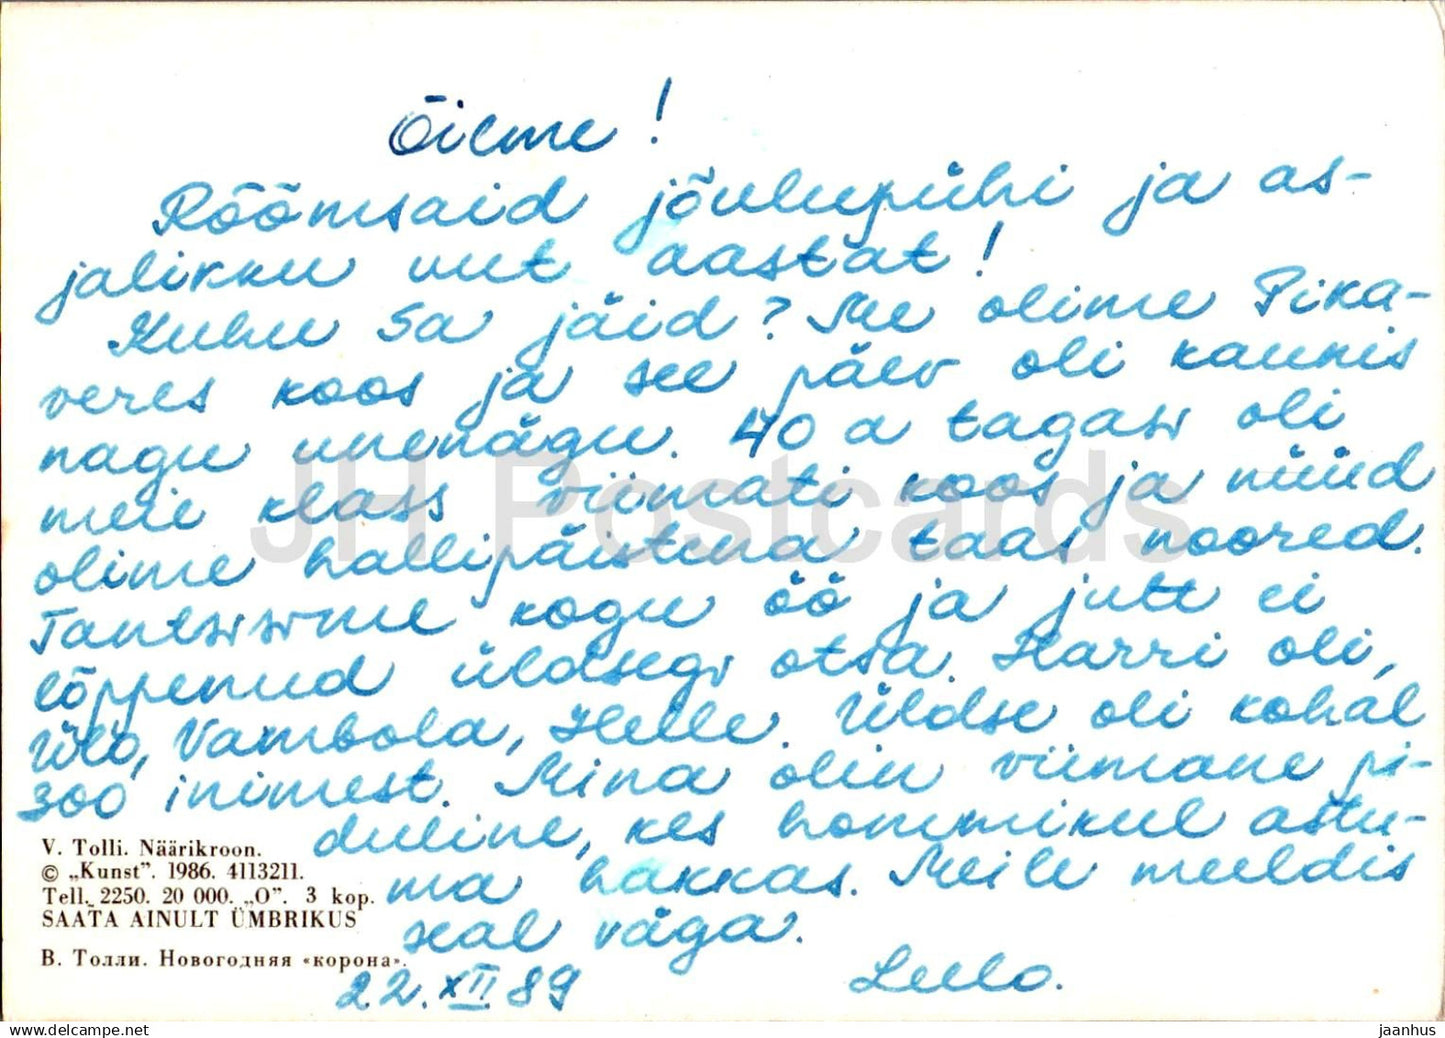 Õilme!
Rõõmsaid jõulupühi ja as-
jalikku uut aastat!
Kuhu Sa jäid? Me olime Pika-
veres koos ja see päev oli kaunis
nagu unenägu. 40 a tagasi oli
meie klass viimati koos ja nüüd
olime hallipäistena taas noored.
Tantsisime kogu öö ja jutt ei
lõppenud üldsegi otsa. Harri oli,
Ülo, Vambola, Helle. Üldse oli kohal
300 inimest. Mina olin viimane pi-
duline, kes hommikul astu-
ma hakkas. Meile meeldis
seal väga.
22.XII.89 Lullo.
V. Tolli. Näärikroon.
© „Kunst”. 1986. 4113211.
Tell. 2250. 20 000. „O”. 3 kop.
SAATA AINULT ÜMBRIKUS
В. Толли. Новогодняя «корона».
JH Postcards
www.delcampe.net
jaanhus